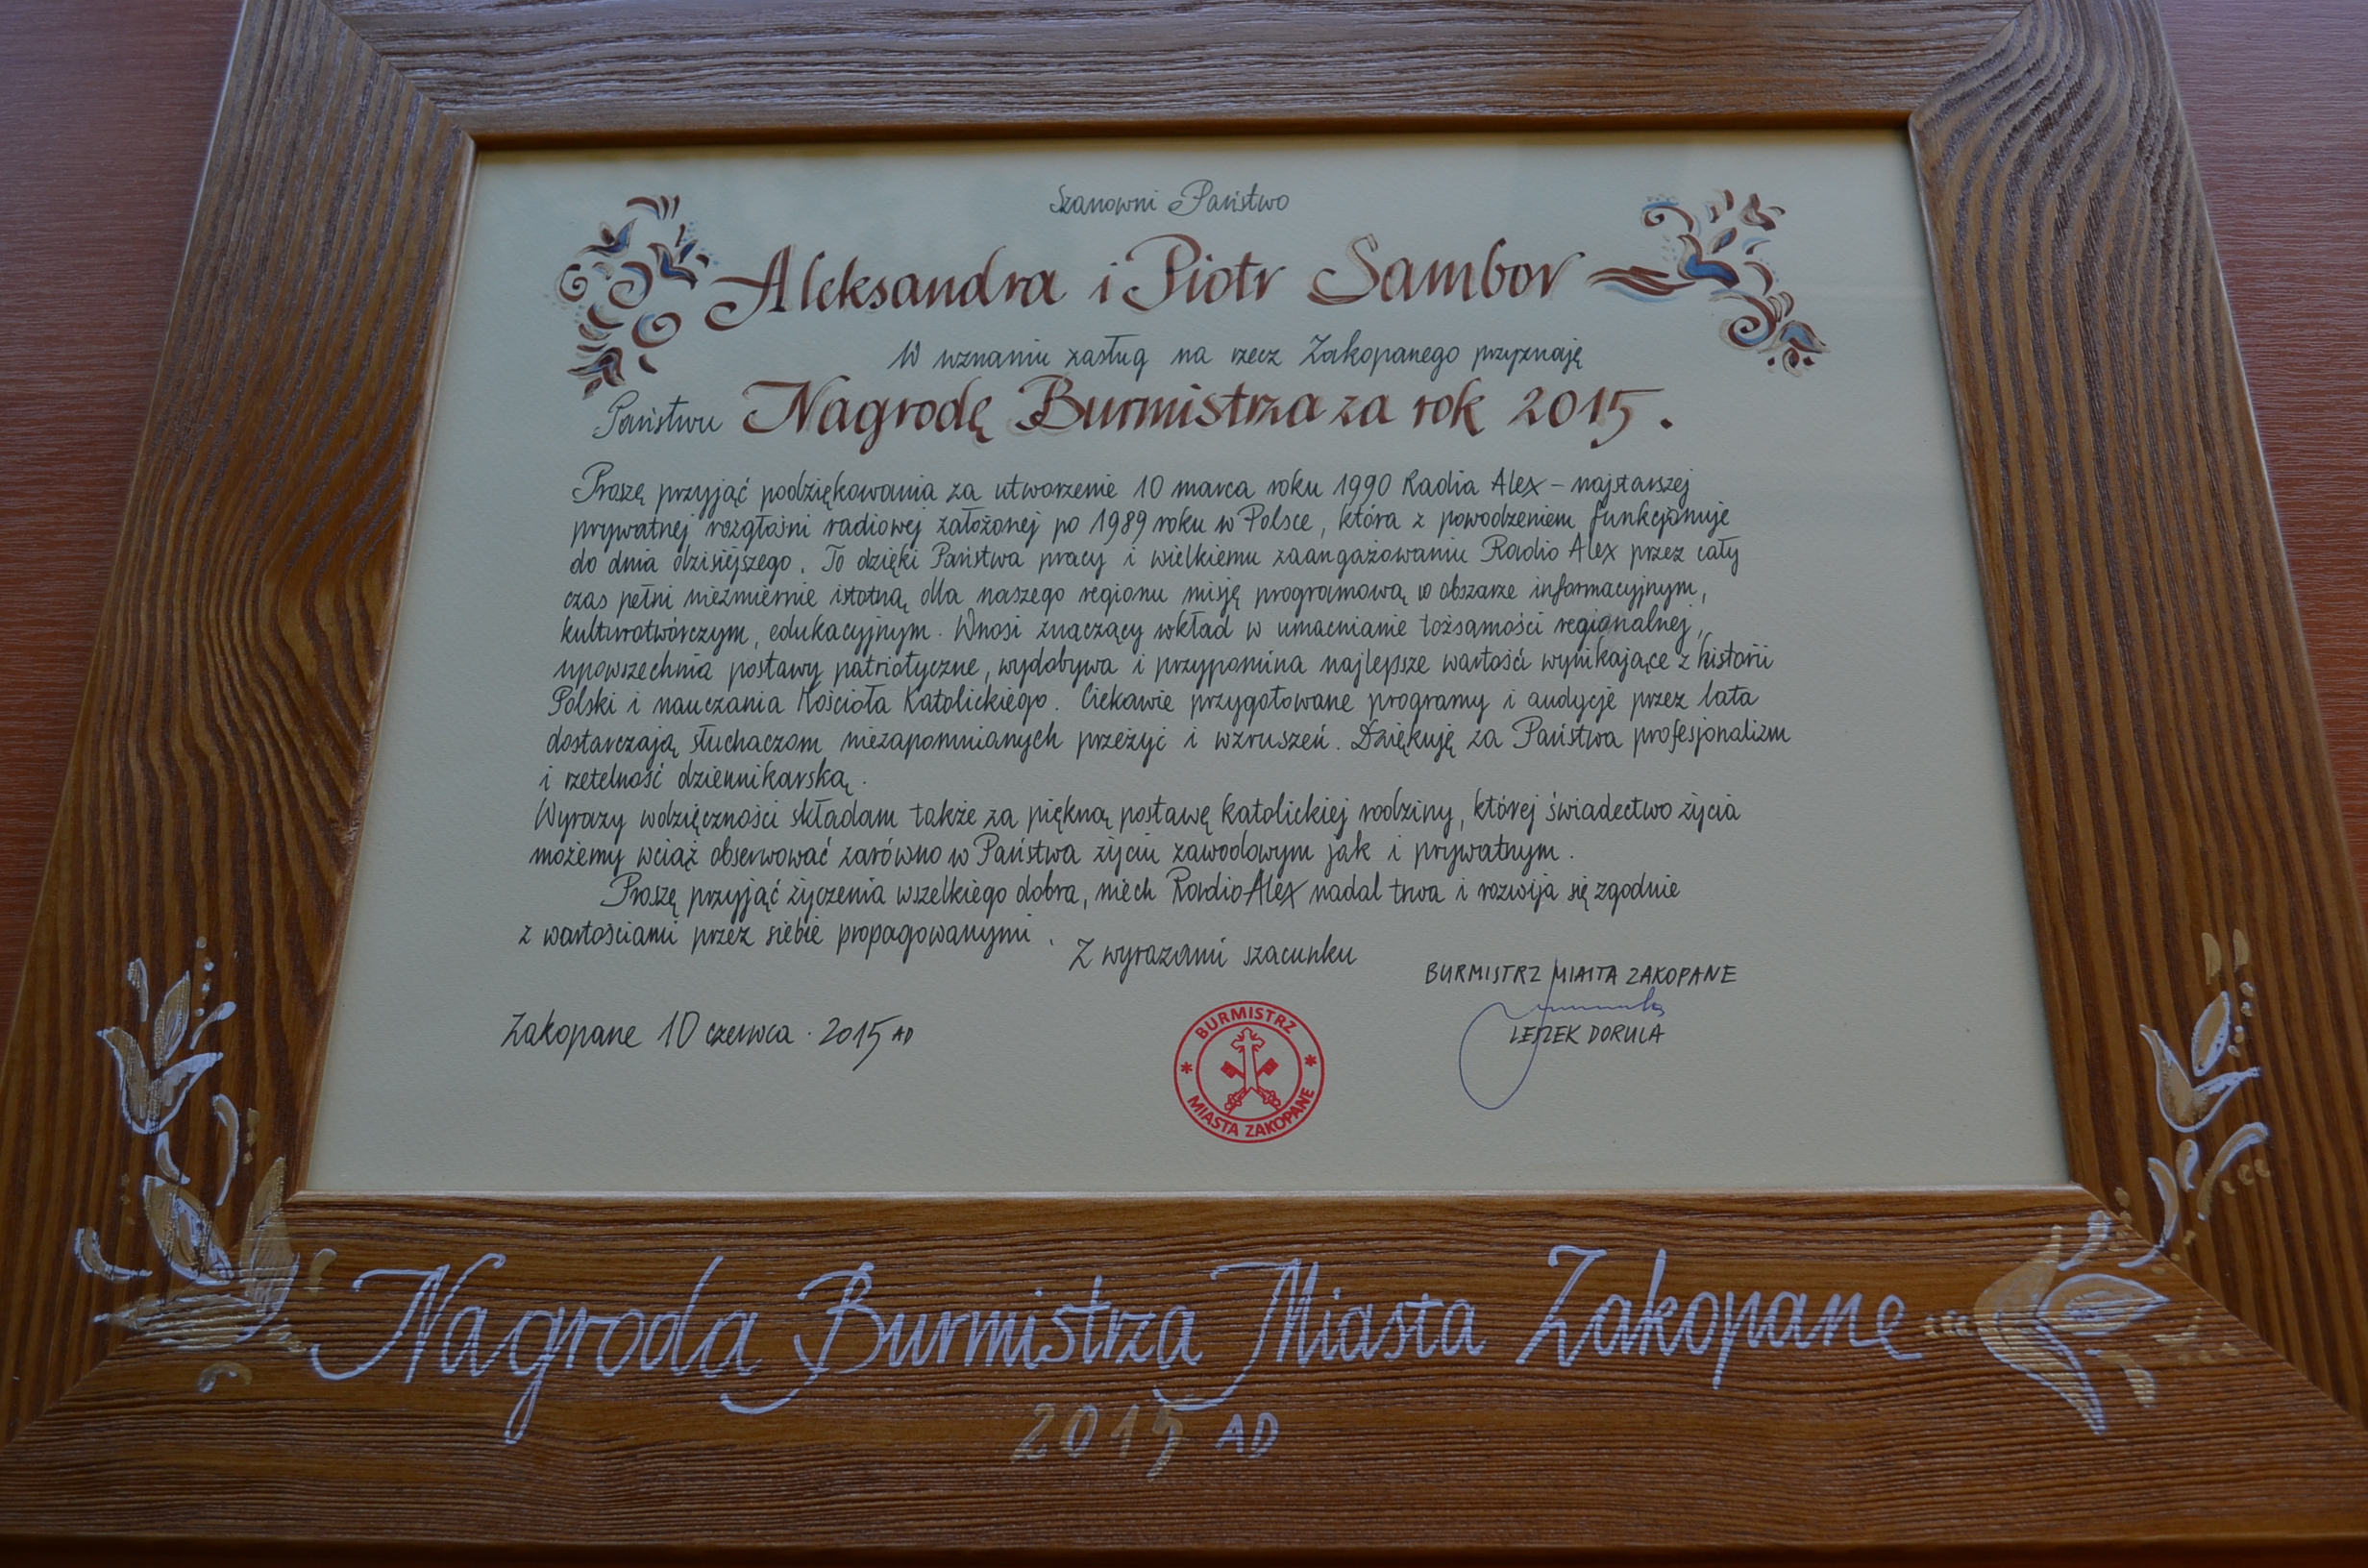 Szanowni Państwo
Aleksandra i Piotr Sambor
W uznaniu zasług na rzecz Zakopanego przyznaję
Państwu Nagrodę Burmistrza za rok 2015.
Proszę przyjąć podziękowania za utworzenie 10 marca roku 1990 Radia Alex – najstarszej
prywatnej rozgłośni radiowej założonej po 1989 roku w Polsce, która z powodzeniem funkcjonuje
do dnia dzisiejszego. To dzięki Państwa pracy i wielkiemu zaangażowaniu Radio Alex przez cały
czas pełni niezmiernie istotną dla naszego regionu misję programową w obszarze informacyjnym,
kulturotwórczym, edukacyjnym. Wnosi znaczący wkład w umacnianie tożsamości regionalnej,
upowszechnia postawy patriotyczne, wydobywa i przypomina najlepsze wartości wynikające z historii
Polski i nauczania Kościoła Katolickiego. Ciekawie przygotowane programy i audycje przez lata
dostarczają słuchaczom niezapomnianych przeżyć i wzruszeń. Dziękuję za Państwa profesjonalizm
i rzetelność dziennikarską.
Wyrazy wdzięczności składam także za piękną postawę katolickiej rodziny, której świadectwo życia
możemy wciąż obserwować zarówno w Państwa życiu zawodowym jak i prywatnym.
Proszę przyjąć życzenia wszelkiego dobra, niech Radio Alex nadal trwa i rozwija się zgodnie
z wartościami przez siebie propagowanymi.
Z wyrazami szacunku
BURMISTRZ MIASTA ZAKOPANE
LESZEK DORULA
Zakopane 10 czerwca 2015 AD
BURMISTRZ
* *
MIASTA ZAKOPANE
Nagroda Burmistrza Miasta Zakopane
2015 AD